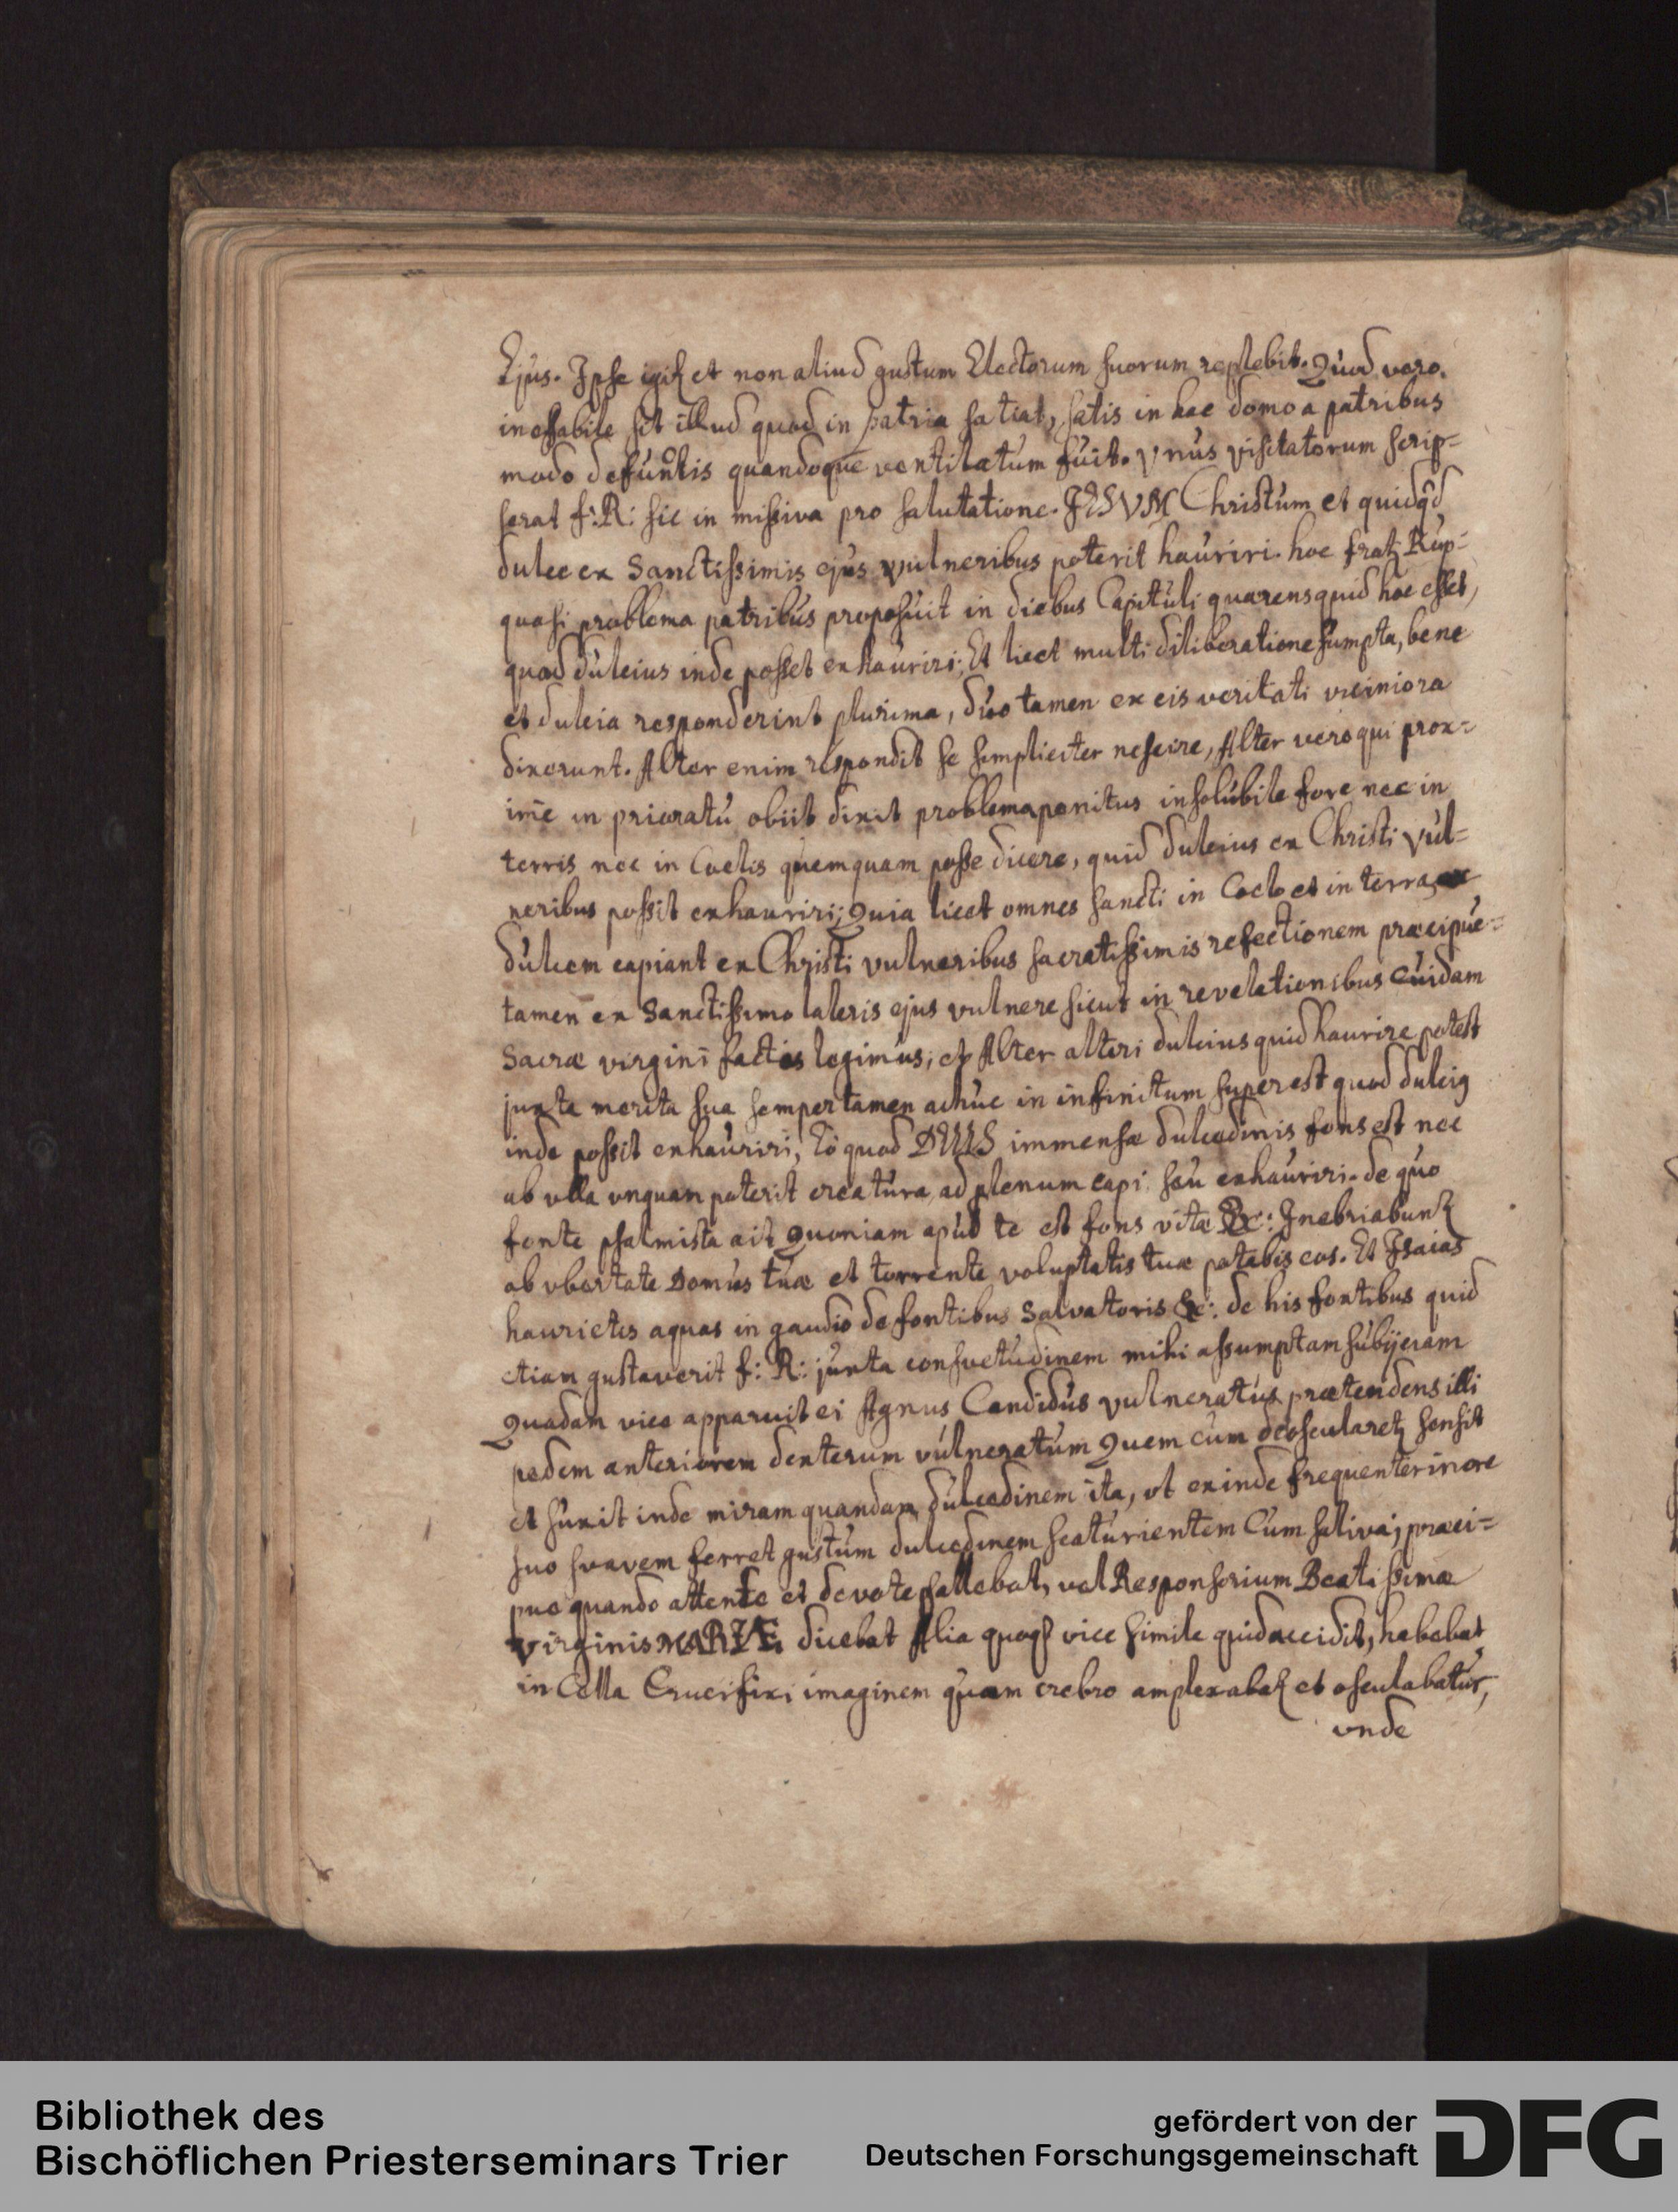 Ejus. Ipse igiꝶ et non aliud gustum Electorum suorum replebit. Quod vero.
ineffabile sit illud quod in patria satiat, satis in hac domo a patribus
modo defunctis quandoque ventilatum fuit. Vnus visitatorum scrip=
serat f: R: sic in missiva pro salutatione. JESVM Christum et quidqd
dulce ex Sanctissimis ejus vulneribus poterit hauriri. hoc fratꝶ Rup=
quasi problema patribus proposuit in diebus Capituli quærens quid hoc esset,
quod dulcius inde posset exhauriri; Et licet multi diliberatione sumpta, bene
et dulcia responderint plurima, duo tamen ex eis veritati viciniora
dixerunt. Alter enim respondit se simpliciter nescire, Alter vero qui prox=
imē in prioratu obiit dixit problema penitus insolubile fore nec in
terris nec in Coelis quemquam posse dicere, quid dulcius ex Christi vul=
neribus possit exhauriri; Quia licet omnes sancti in Coelo et in terra
dulcem capiant ex Christi vulneribus sacratissimis refectionem præcipue=
tamen ex Sanctissimo lateris ejus vulnere sicut in revelationibus cuidam
Sacræ virgini factis legimus; et Alter alteri dulcius quid haurire potest
juxta merita sua semper tamen adhuc in infinitum superest quod dulcig
inde possit exhauriri, Eò quod DEUS immensæ dulcedinis fons est nec
ab vlla vnquam poterit creatura ad plenum capi seu exhauriri. de quo
fonte psalmista ait Quoniam apud te est fons vitæ &c: Inebriabunꝶ
ab vbertate Domus tuæ et torrente voluptatis tuæ potabis eos. Et Isaias
haurietis aquas in gaudio de fontibus Salvatoris &c: de his fontibus quid
etiam gustaverit f: R: juxta consuetudinem mihi assumptam subijciam
Quadam vice apparuit ei Agnus Candidus vulneratus prætendens illi
pedem anteriorem dexterum vulneratum Quem cum deoscularetꝶ sensit
et suxit inde miram quandam dulcedinem ita, vt exinde frequenter in ore
suo svavem ferret gustum dulcedinem scaturientem Cum saliva; præci=
pue quando attente et devote psallebat, vel Responsorium Beatissimæ
virginis MARIÆ, dicebat Alia quoqꝫ vice simile quid accidit, habebat
in Cella Crucifixi imaginem quam crebro amplexabaꝶ et osculabatur,
vnde
Bibliothek des
Bischöflichen Priesterseminars Trier
gefördert von der
Deutschen Forschungsgemeinschaft
DFG